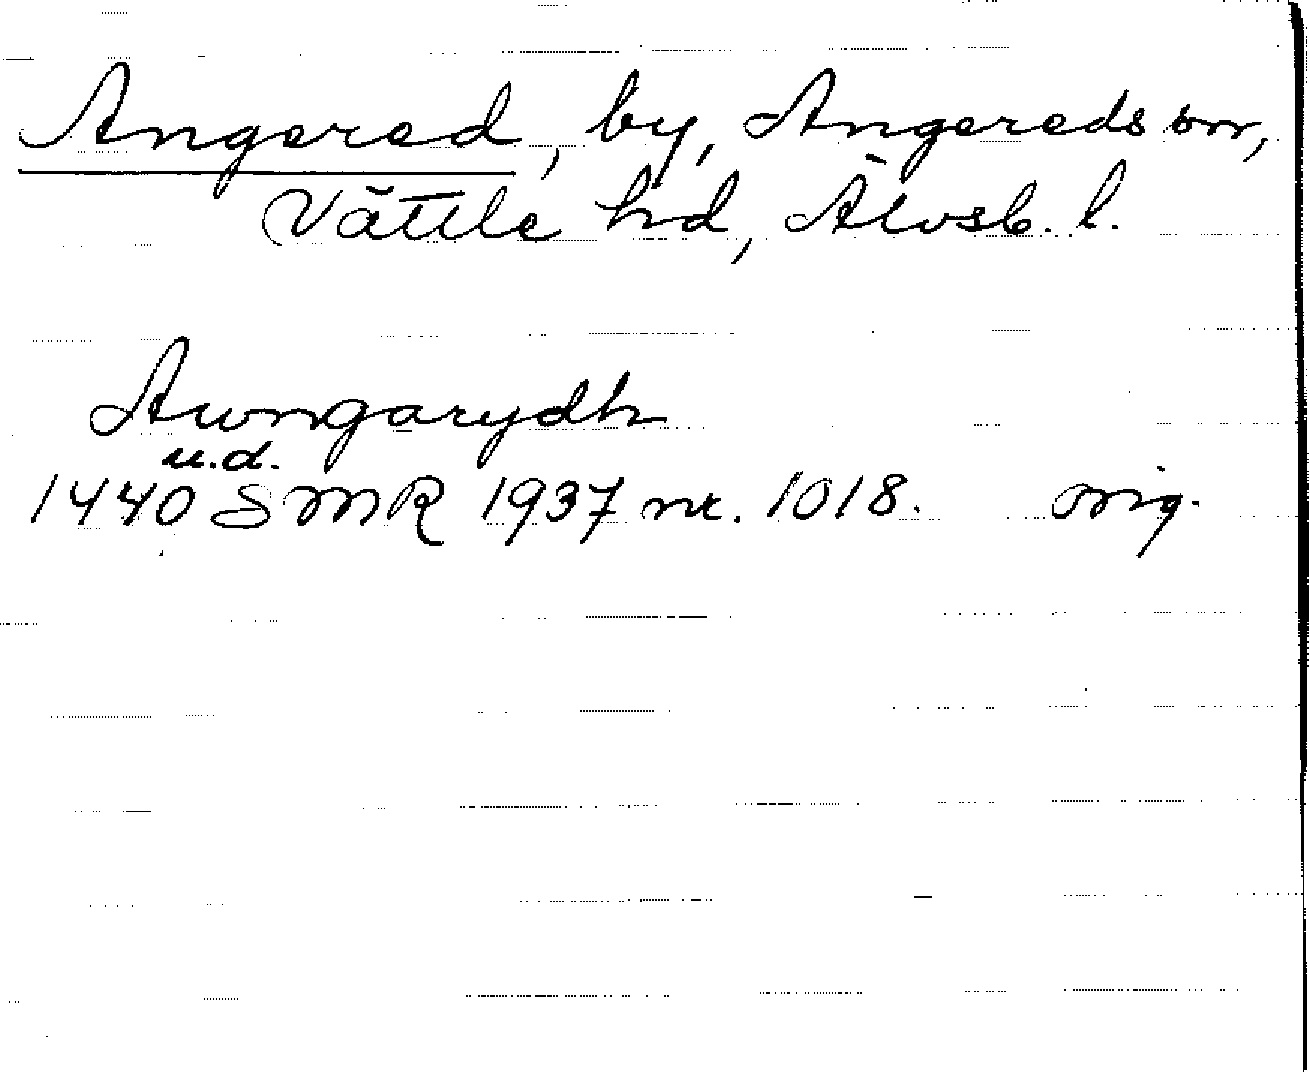 Angered, by, Angereds sn,
Vättle hd, Älvsb. l.
Awngarydh
u.d.
1440 SMR 1937 nr. 1018. orig.